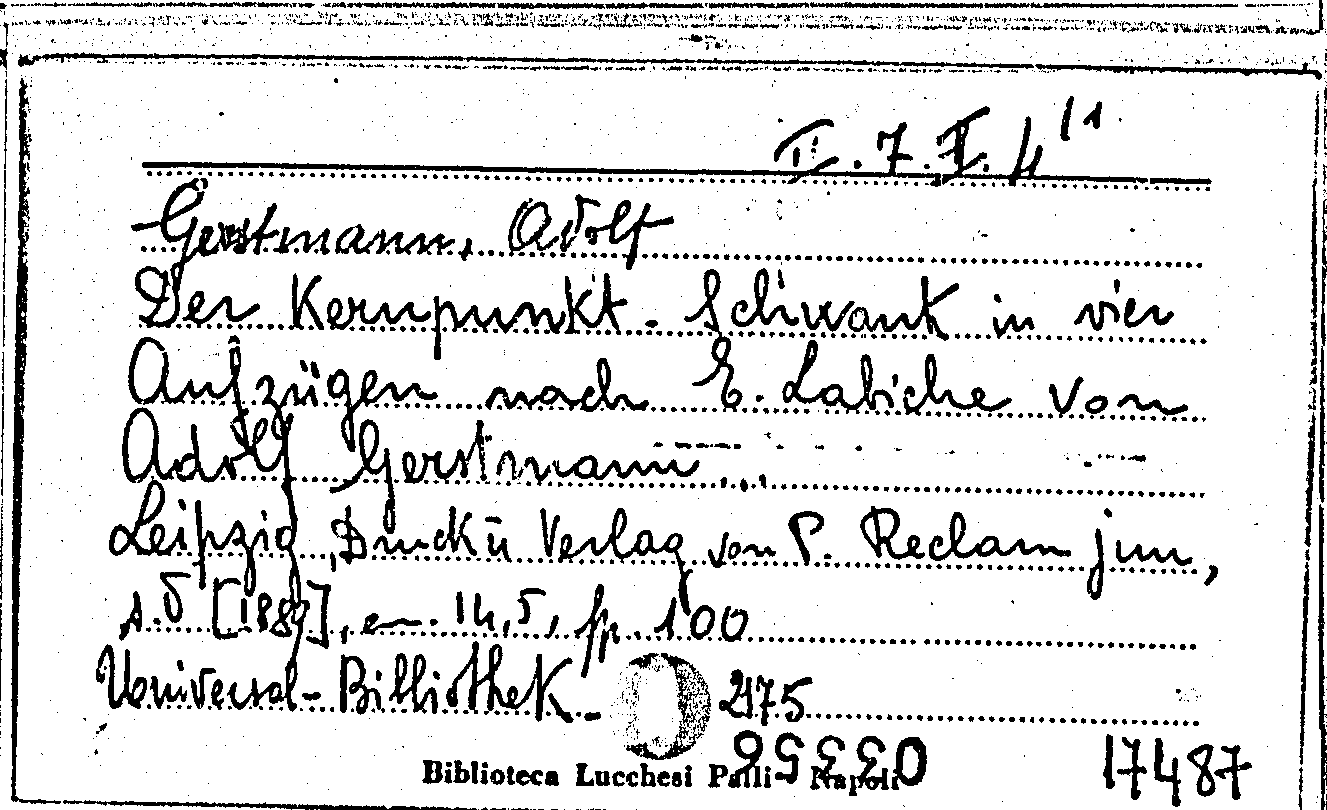 II. 7. II. 4 /1
Gerstmann, Adolf
Der Kernpunkt. Schwank in vier
Aufzügen nach E. Labiche von
Adolf Gerstmann...
Leipzig, Druck ū Verlag von P. Reclam jun,
s. d [1887], cm. 14,5, pp. 100
Universal-Bibliothek - 2175
Biblioteca Lucchesi Palli - Napoli
17487